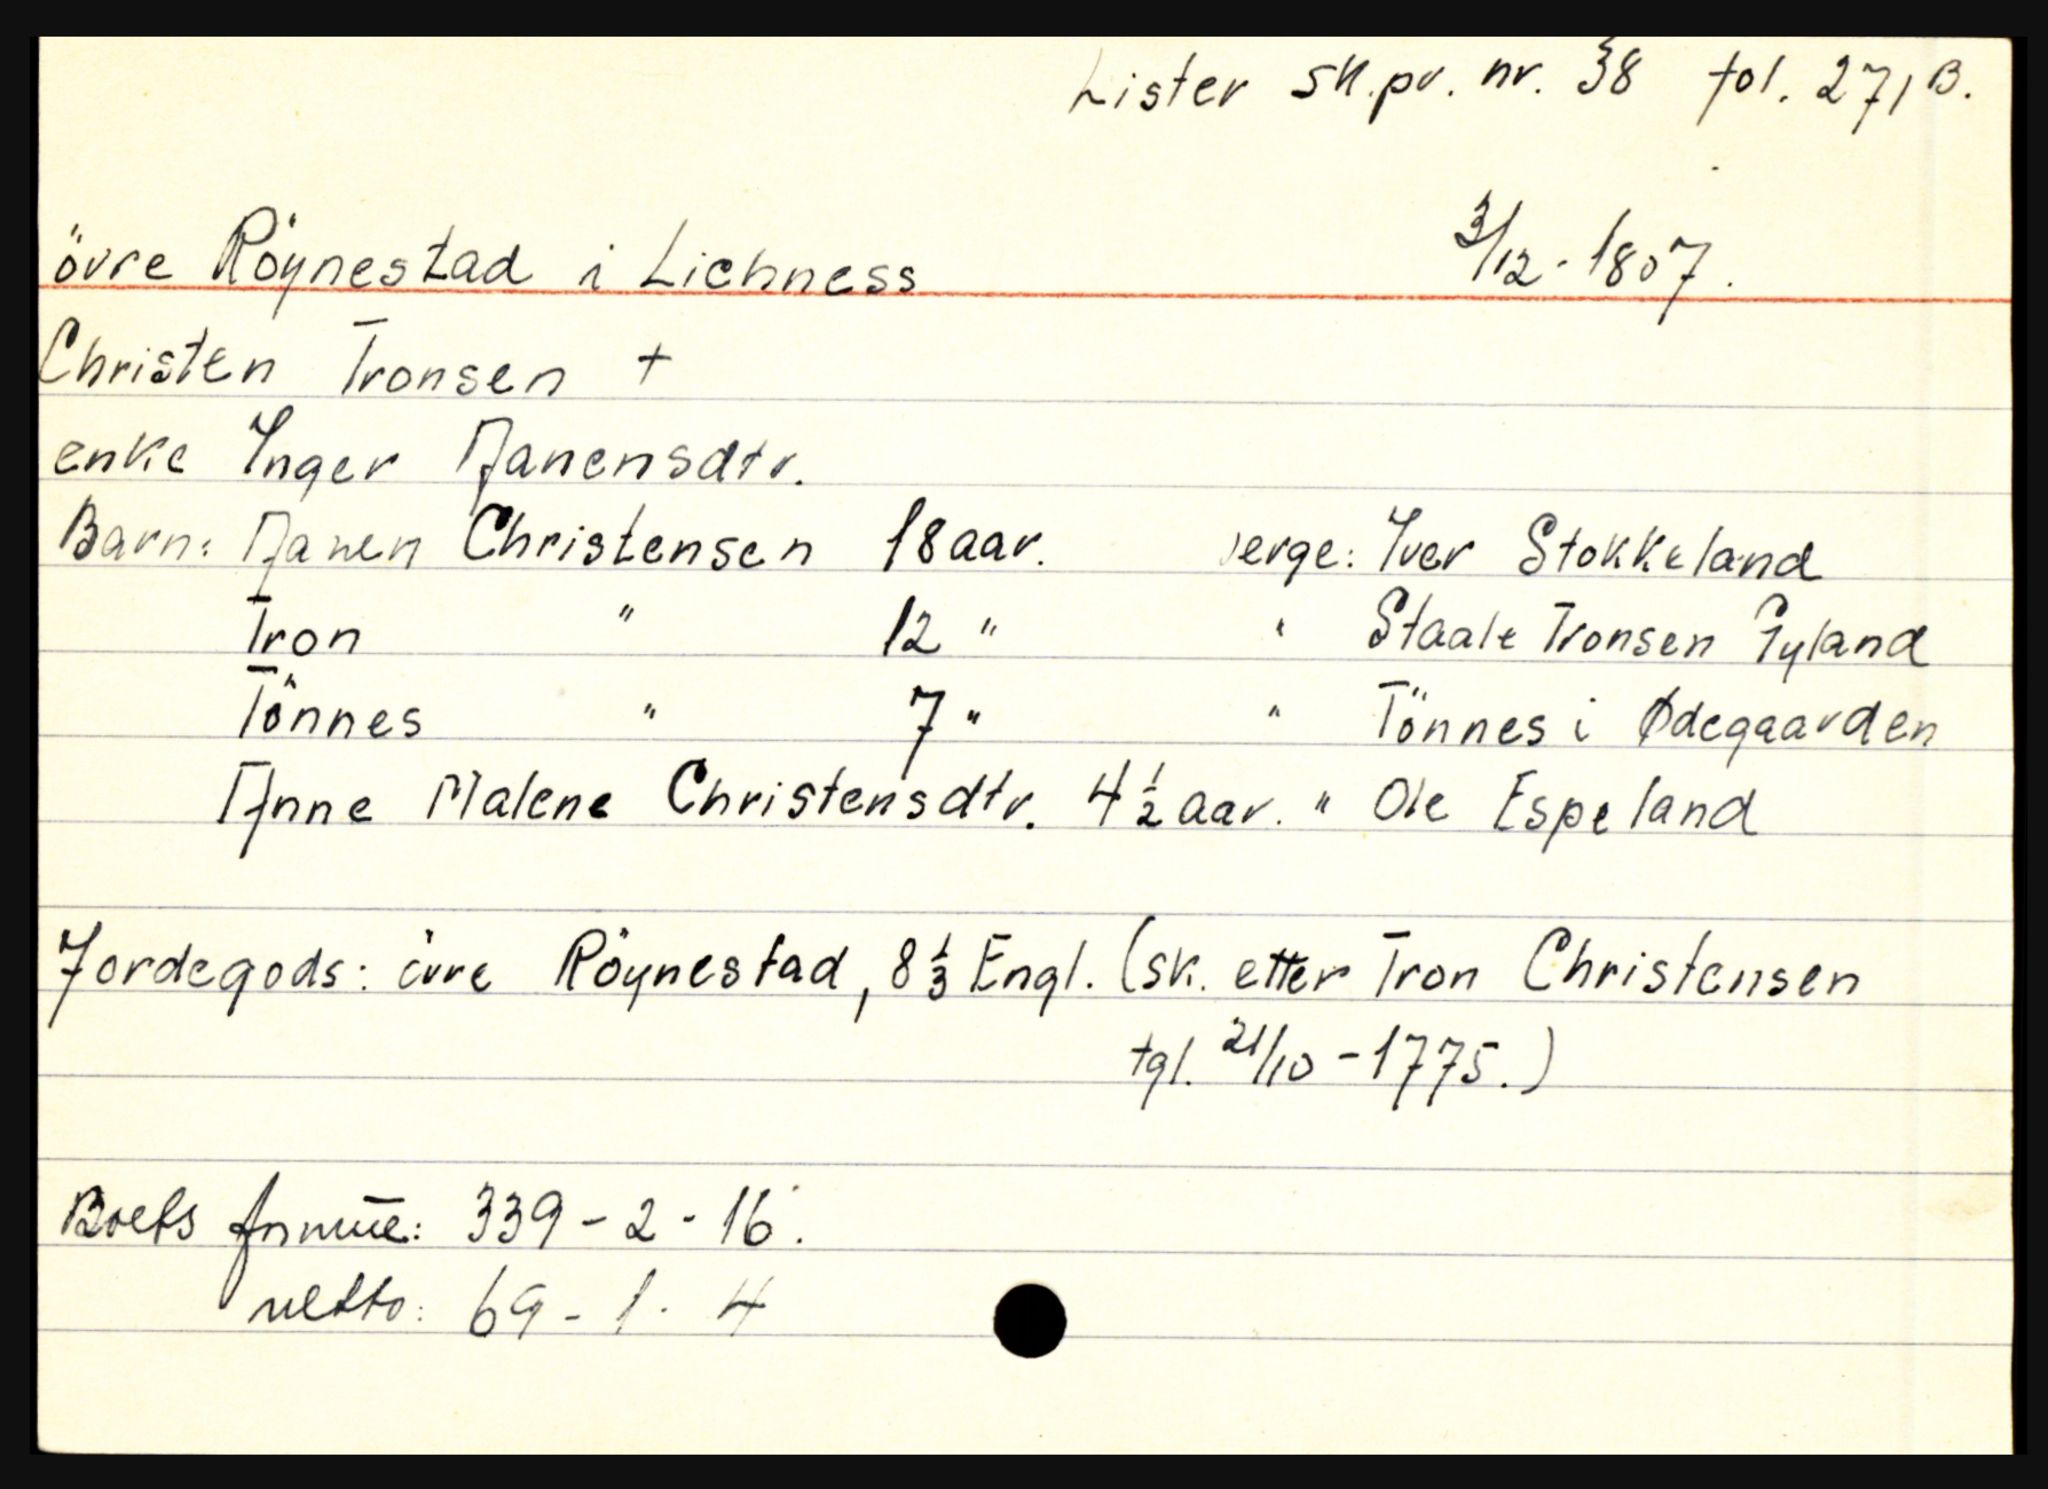 Lister sk.pr. nr. 38 fol. 271 B.
övre Röynestad i Lichness 3/12-1807.
Christen Tronsen +
enke Inger Aanensdtr.
Barn: Aanen Christensen 18 aar. verge: Iver Stokkeland
Tron " 12 " " Staale Tronsen Gyland
Tönnes " 7 " " Tönnes i Ødegaarden
Anne Malene Christensdtr. 4 1/2 aar. " Ole Espeland
Jordegods: övre Röynestad, 8 1/3 Engl. (sk. etter Tron Christensen
tgl. 21/10 - 1775.)
Boets formue: 339 - 2 - 16.
netto: 69 - 1 - 4